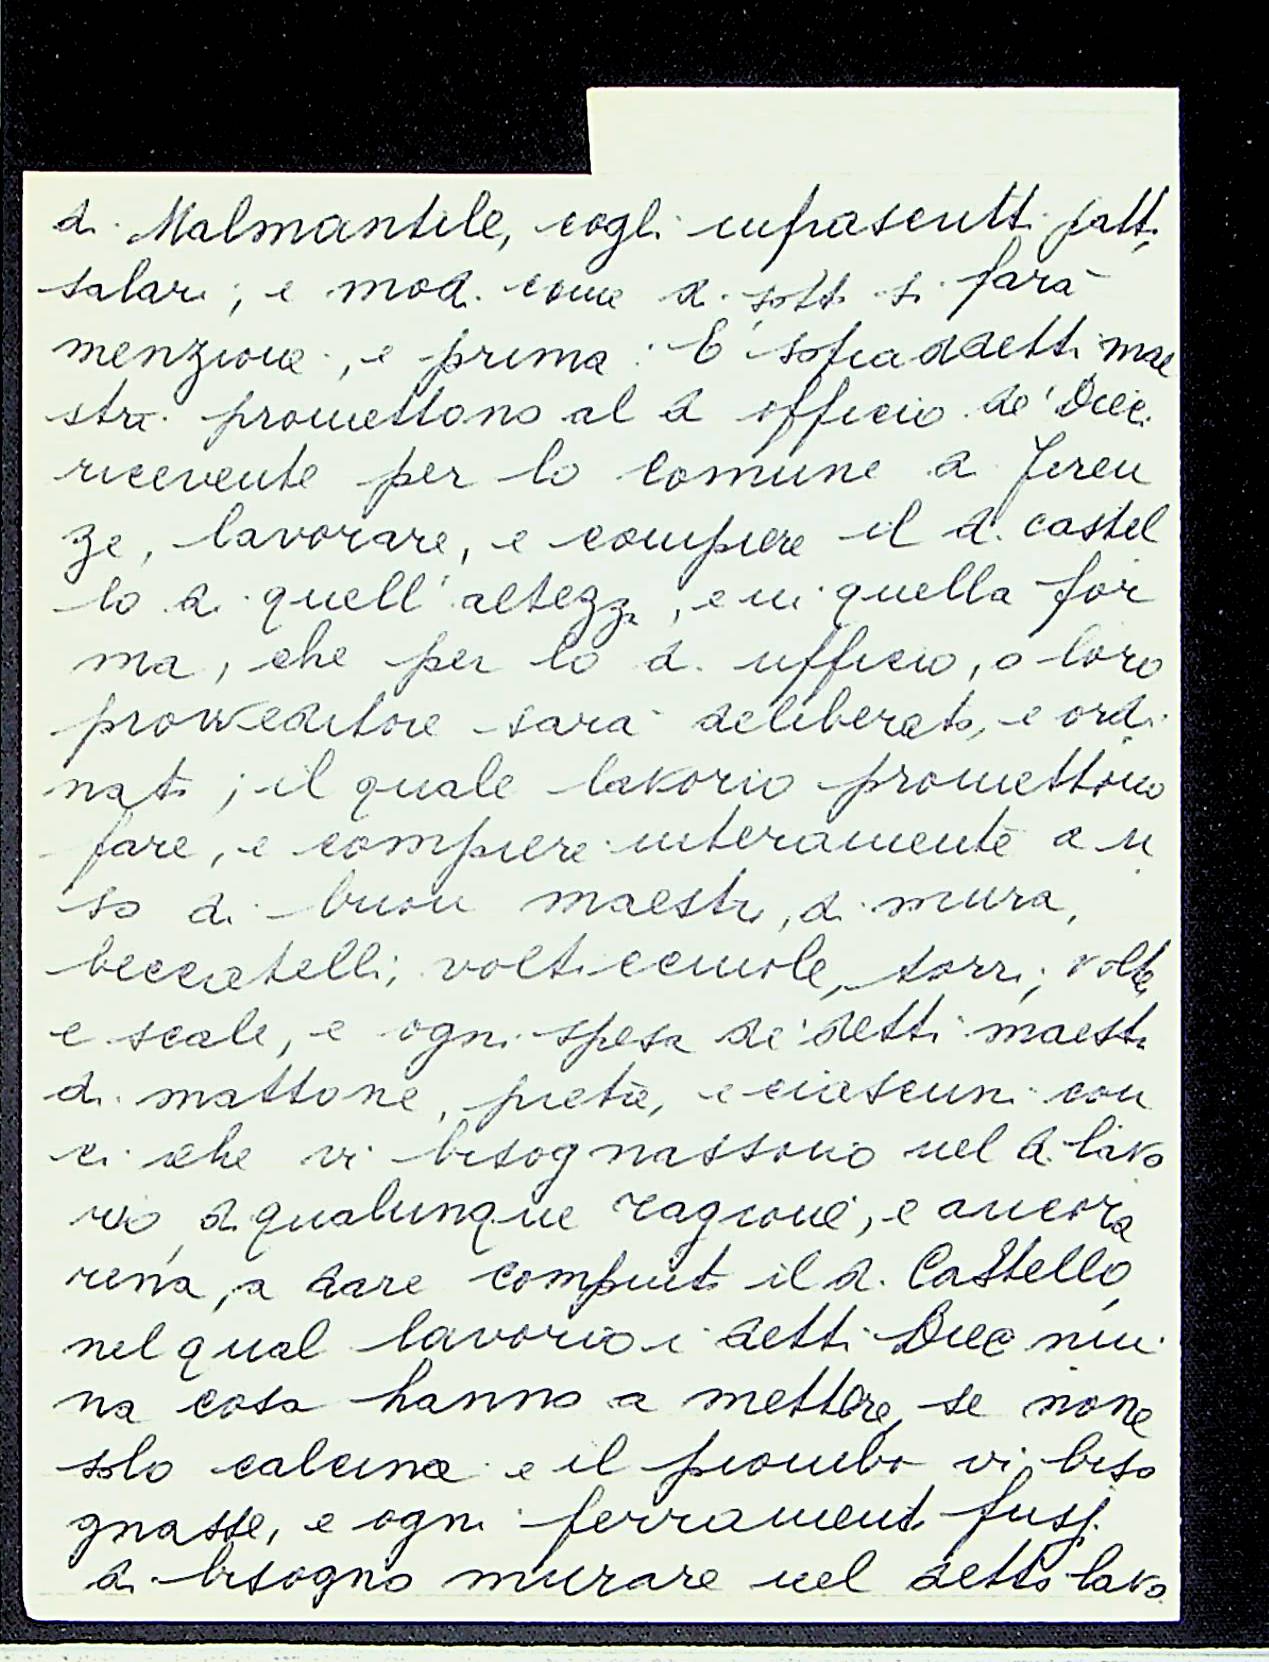 di Malmantile, cogli infrascritti patti,
salari, e modi come di sotto si farà
menzione, e prima: E' sopraddetti mae
stri promettono al d. officio de' Dieci
ricevente per lo comune di Firen
ze, lavorare, e compiere il d. castel
lo di quell'altezza, e in quella for
ma, che per lo d. ufficio, o loro
provveditore sarà deliberato, e ordi
nato; il quale lavorio promettono
fare, e compiere interamente a u
so di buon maestro, di mura,
beccatelli, volticciuole, torri, volte,
e scale, e ogni spesa de' detti maestri
di mattone, pietre, e ciascuni con
ci che vi bisognassono nel d. lavo
rio, di qualunque ragione, e ancora
rena, a dare compiuto il d. Castello,
nel qual lavorio i detti Dieci niu
na cosa hanno a mettere, se none
solo calcina e il piombo vi biso
gnasse, e ogni ferramento fussi
di bisogno murare nel detto lavo